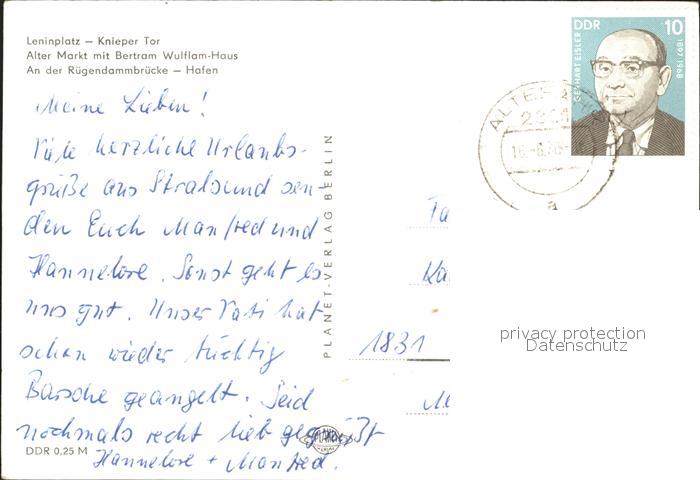 Leninplatz – Knieper Tor
Alter Markt mit Bertram Wulflam-Haus
An der Rügendammbrücke – Hafen
Meine Lieben!
Viele herzliche Urlaubs-
grüße aus Stralsund sen-
den Euch Manfred und
Hannelore. Sonst geht es
uns gut. Unser Vati hat
schon wieder tüchtig
Barsche geangelt. Seid
nochmals recht lieb gegrüßt
Hannelore + Manfred.
DDR 0,25 M
PLANET-VERLAG BERLIN
PLANET
DDR 10
GERHART EISLER 1897-1968
ALTEF
16.-6.78
a
Ta
Ka
1831
privacy protection
Datenschutz